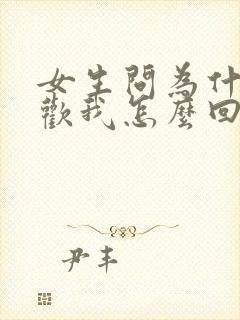 女生問為什
歡我怎麼回
尹丰